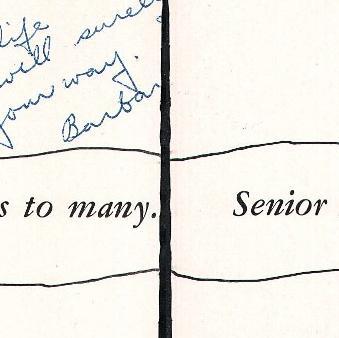 life
will surely
your way.
Barbar
s to many.
Senior